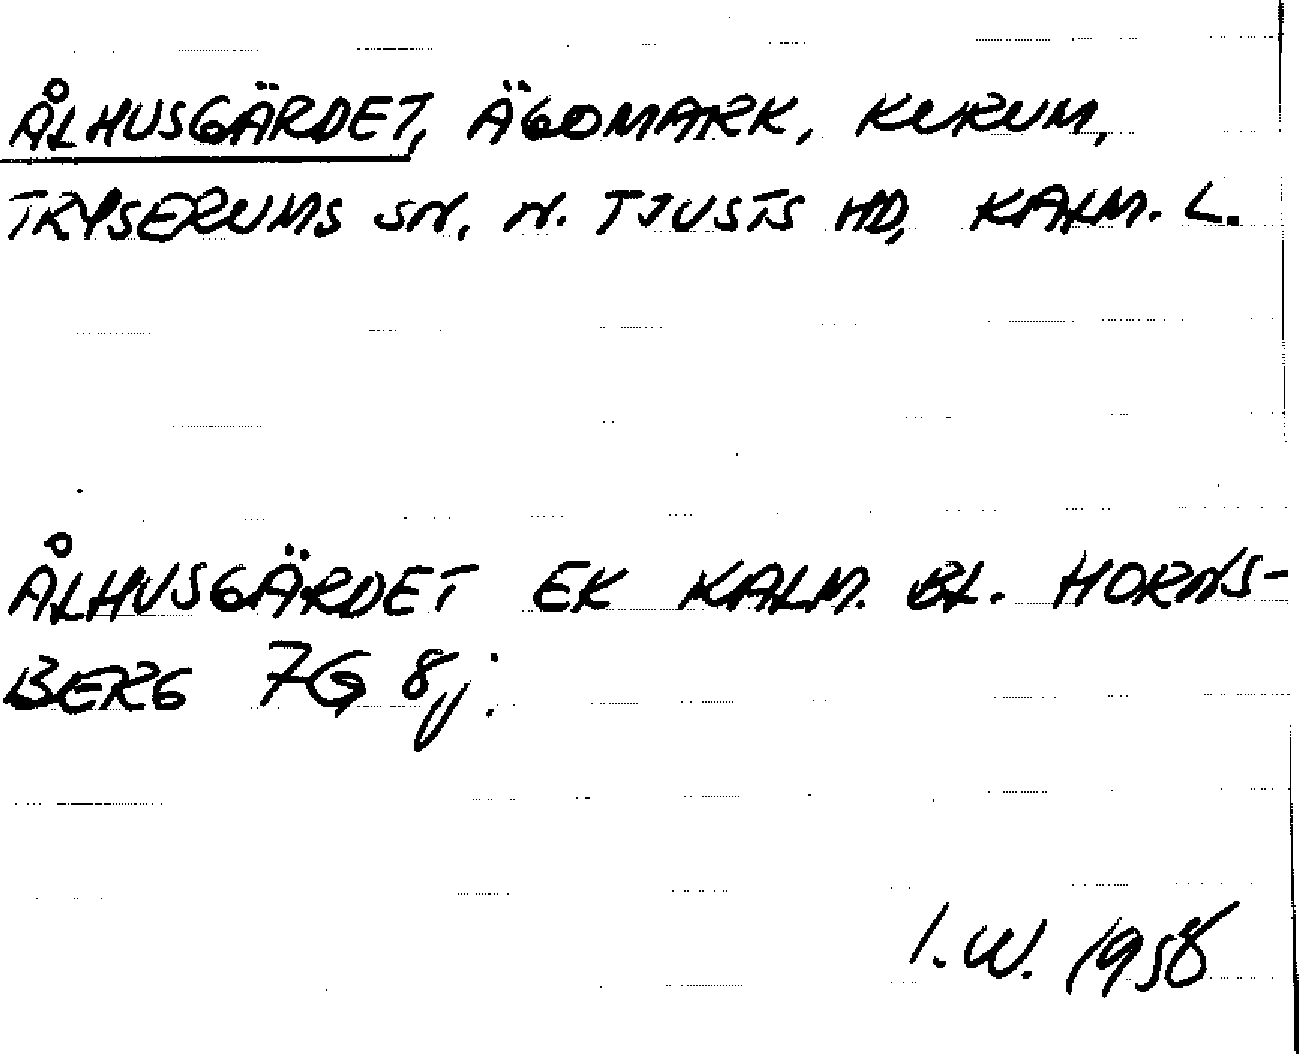 ÅLHUSGÄRDET, ÄGOMARK, KURUM,
TRYSERUMS SN, N. TJUSTS HD, KALM. L.
ÅLHUSGÄRDET EK KALM. BL. HORNS-
BERG 7G 8j:
I.W. 1958